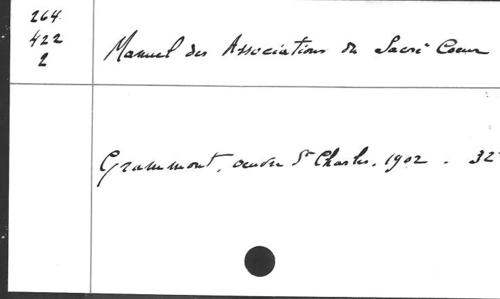 264
422
2
Manuel des Associations du Sacré Coeur
Grammont, oeuvre St Charles, 1902. 32°